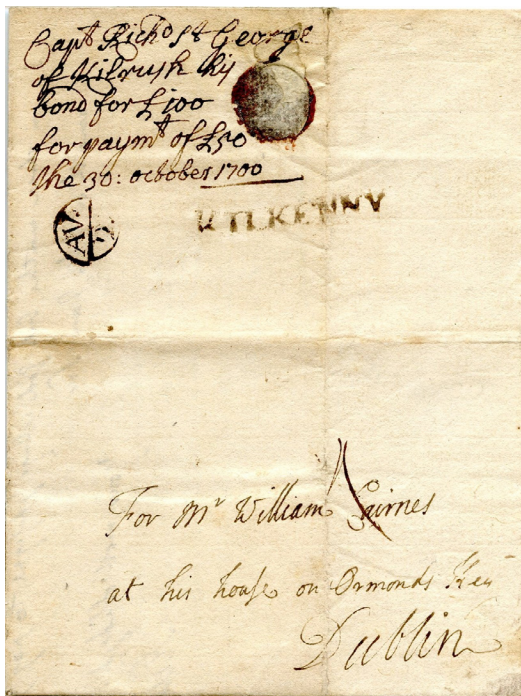 Capt Richd St George
of Kilrush his
bond for £100
for paymt of £50
the 30: october 1700
AV
KILKENNY
For Mr William Cairnes
at his house on Ormonds Key
Dublin